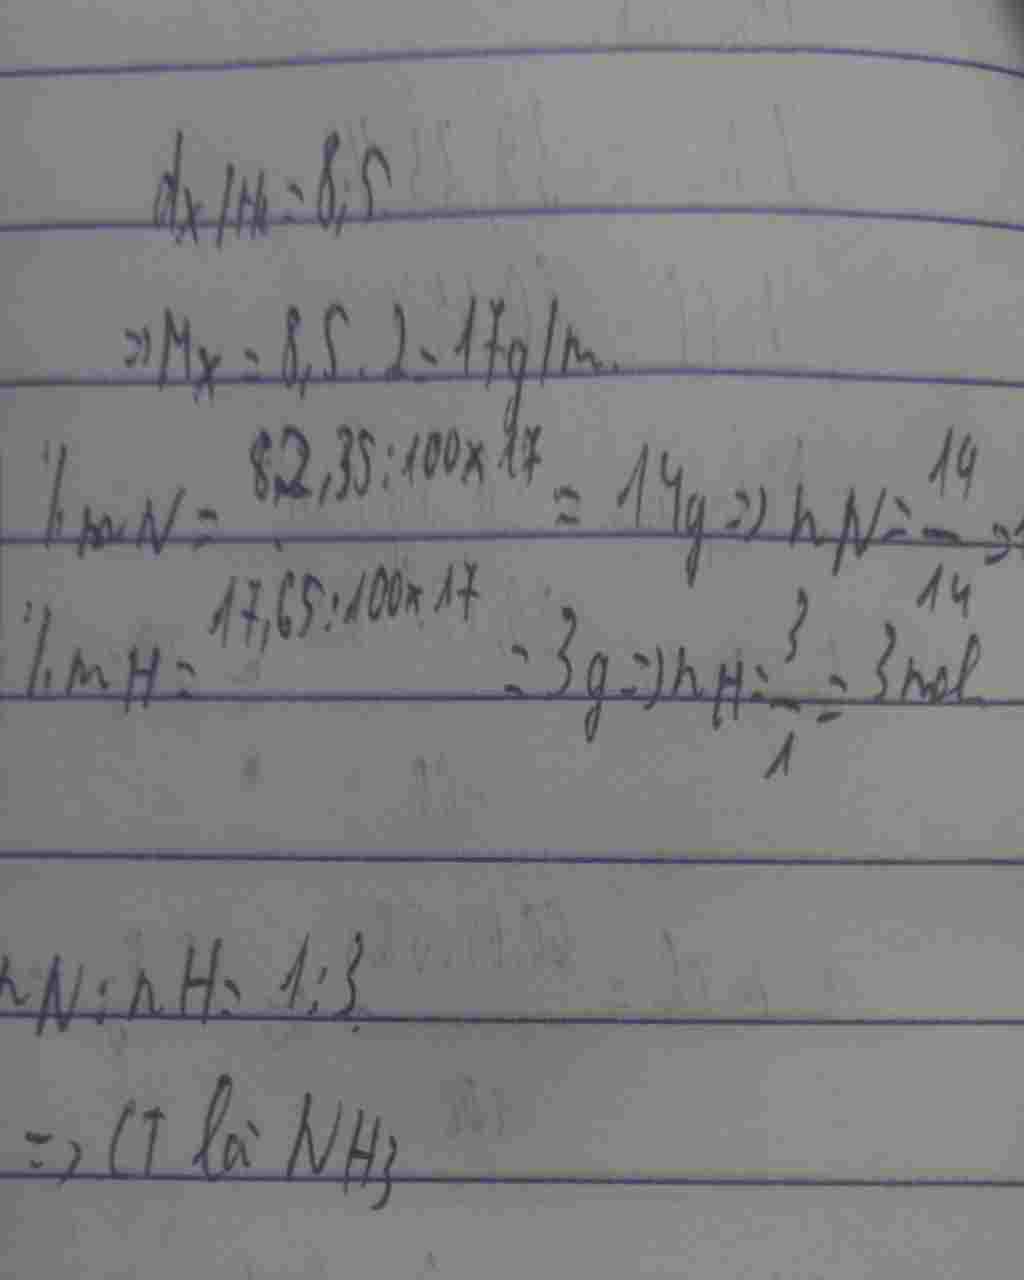 dx/H2 = 8,5
=> Mx = 8,5 . 2 = 17g/m.
% mN = 82,35:100x17 = 14g => nN = 14/14 =>
% mH = 17,65:100x17 = 3g => nH = 3/1 = 3mol
nN : nH = 1:3
=> CT là NH3